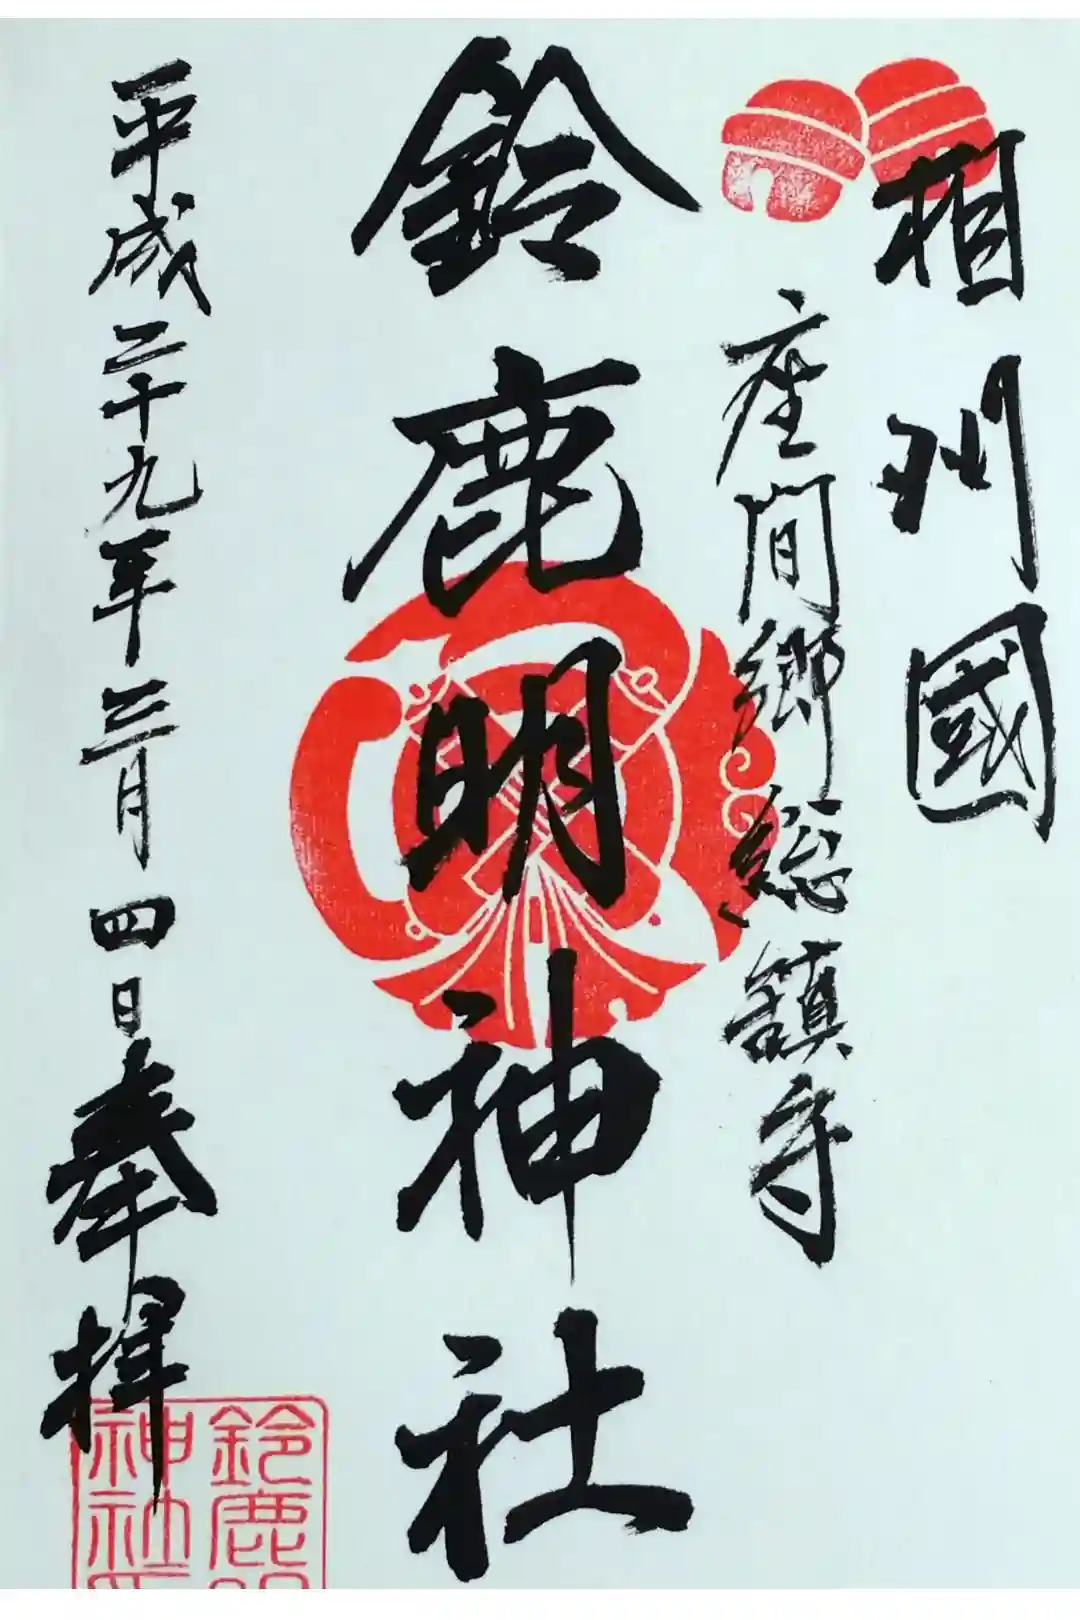 相州國
座間郷総鎮守
鈴鹿明神社
平成二十九年三月四日奉拝
鈴鹿明
神社